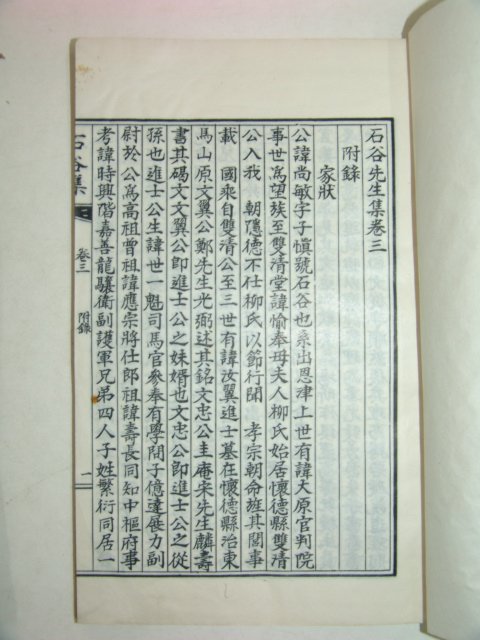 石谷先生集卷三
附錄
家狀
公諱尚敏字子愼號石谷也系出恩津上世有諱大原官判院
事世爲望族至雙淸堂諱愉奉母夫人柳氏始居懷德縣雙淸
公入我 朝隱德不仕柳氏以節行聞 孝宗朝命旌其閭事
載 國乘自雙淸公至三世有諱汝翼進士墓在懷德縣治東
馬山原文翼公鄭先生光弼述其銘文忠公圭庵宋先生麟壽
書其碣文文翼公卽進士公之妹婿也文忠公卽進士公之從
孫也進士公生諱世一魁司馬官參奉有學問子億達展力副
尉於公爲高祖曾祖諱應宗將仕郎祖諱壽長同知中樞府事
考諱時興階嘉善龍驤衛副護軍兄弟四人子姓繁衍同居一
石谷集 卷三 附錄 一